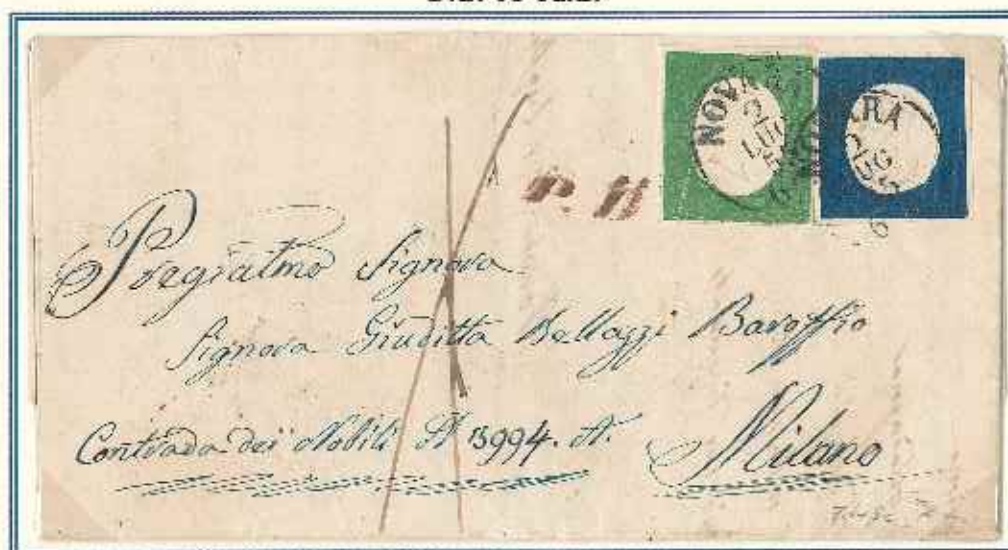 NOVARA
2
LUG
NOVARA
LUG
P.
Pregiatma Signora
Signora Giuditta Bellazzi Baroffio
Contrada dei Nobili N 3994. A.
Milano